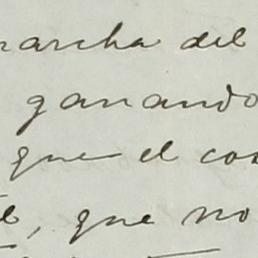 marcha del
ganando
que el
que no